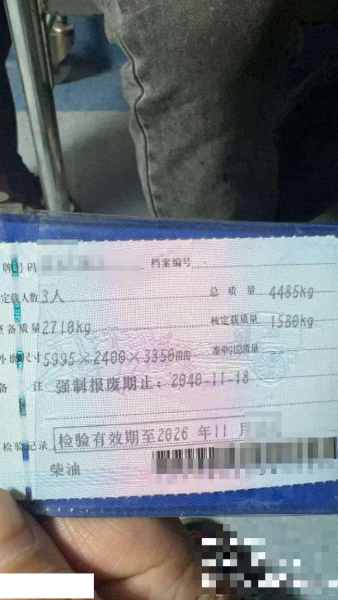 号码 档案编号
定载人数 3人 总质量 4485kg
整备质量 2710kg 核定载质量 1580kg
外廓尺寸 5995×2400×3350mm 准牵引总质量
备 注 强制报废期止：2040-11-18
检验记录 检验有效期至2026 年11 月
柴油